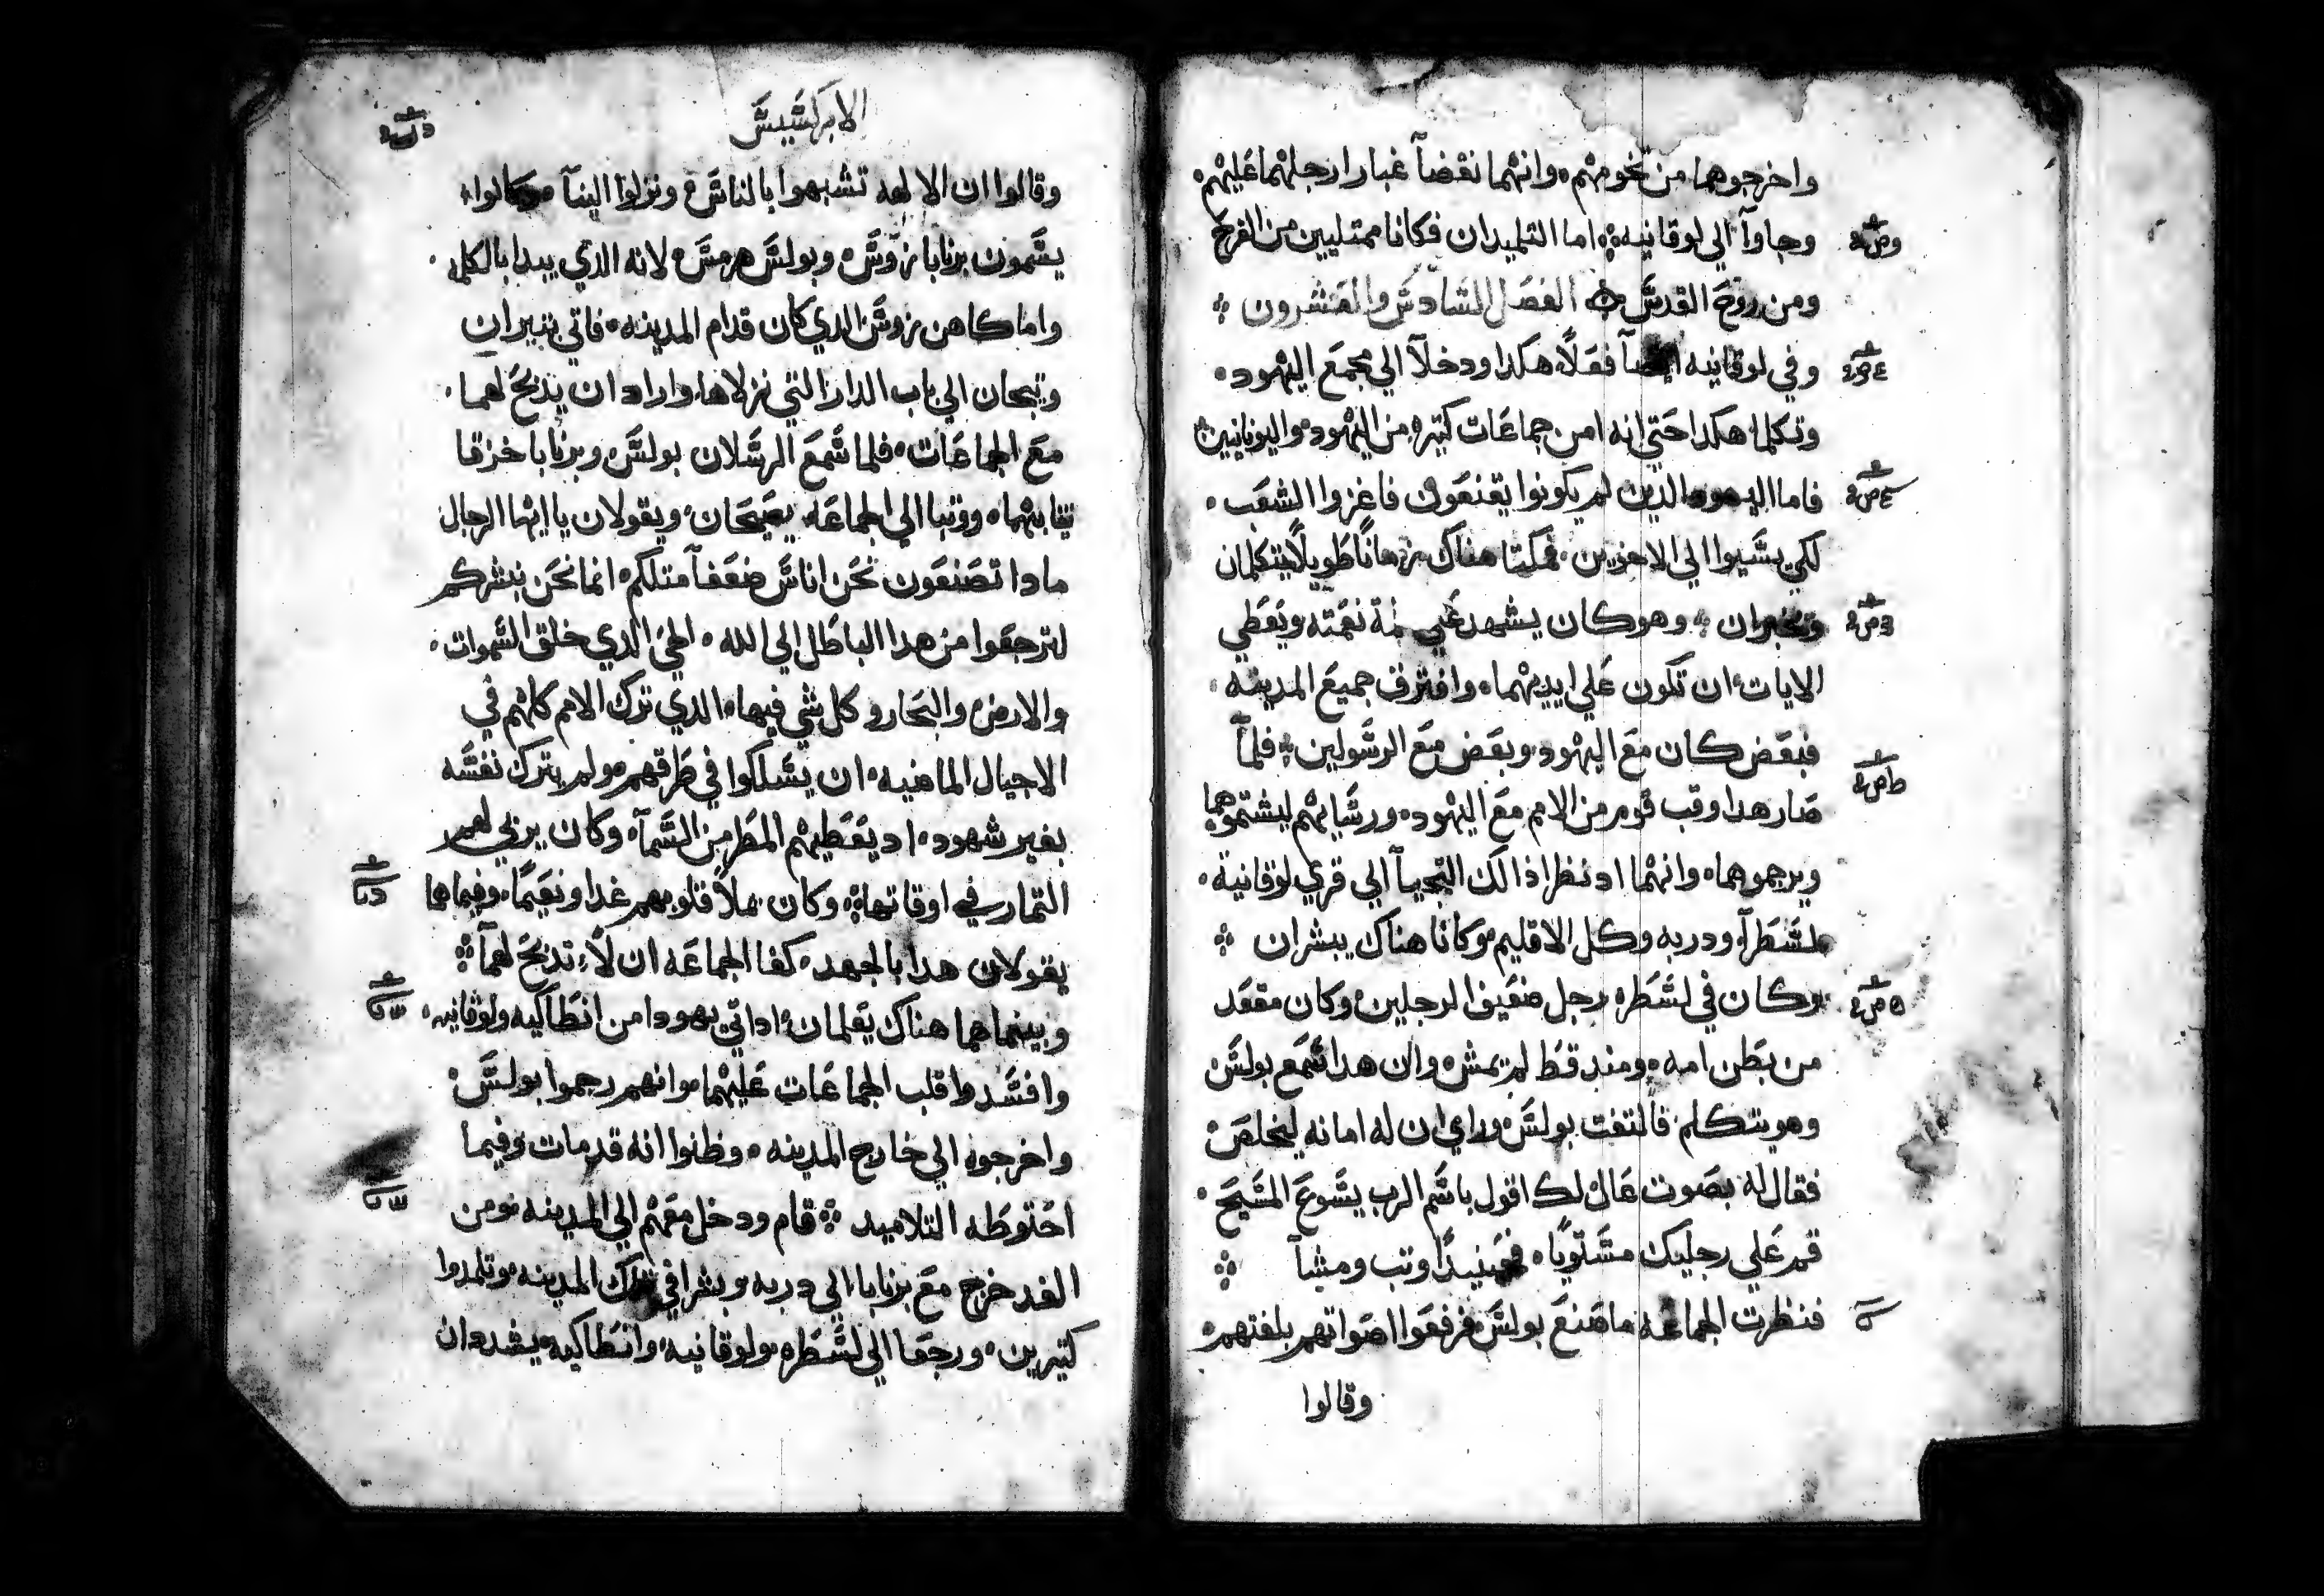 واخرجوهما من تخومهم وانهما نفضآ غبار ارجلهما عليهم
وجاوآ الي لوقانيه اما التلميدان فكانا ممتليين من الفرح
ومن روح القدس الفصل السادس والعشرون
وفي لوقانيه ايضآ فعلا هكدا ودخلآ الي مجمع اليهود
وتكلما هكدا حتي انه امن جماعات كتيره من اليهود واليونانيين
فاما اليهود الدين لم يكونوا يقنعون فاغزوا الشعب
لكي يسيوا الي الاخوين فمكتا هناك زمانا طويلا يتكلمان
وهو كان يشهد علي نعمته ويعطي
الايات ان تكون علي ايديهما وافترق جميع المدينه
فبعض كان مع اليهود وبعض مع الرسولين فلمآ
صار هدا وقب قوم من الامم مع اليهود ورسايهم ليشتموهما
ويرجموهما وانهما اد نظرا ذالك التجيآ الي قري لوقانية
لسطرآ ودربه وكل الاقليم وكانا هناك يبشران
وكان في لسطره رجل ضعيف الرجلين وكان مقعد
من بطن امه ومند قط لم يمش وان هدا سمع بولس
وهو يتكلم فالتفت بولس وراي ان له امانه ليخلص
فقال له بصوت عال لك اقول باسم الرب يسوع المسيح
قم علي رجليك مستويا فحينيدا وتب ومشآ
فنظرت الجماعه ما صنع بولس فرفعوا اصواتهم بلغتهم
وقالوا
الابركسيس
وقالوا ان الالهه تشبهوا بالناس ونزلوا الينآ وكانوا
يسمون برنابا زوش وبولس هرمس لانه الدي يبدا بالكلم
واما كاهن زوش الدي كان قدام المدينه فاتي بتيران
وتيجان الي باب الدار التي نزلاها واراد ان يدبح لهما
مع الجماعات فلما سمع الرسلان بولس وبرنابا خزقا
تيابهما ووتبا الي الجماعه يصيحان ويقولان يا ايها الرجال
مادا تصنعون نحن اناس ضعفآ متلكم انما نحن نبشركم
لترجعوا من هدا الباطل الي الله الحي الدي خلق السموات
والارض والبحار وكل شي فيها الدي ترك الامم كلهم في
الاجيال الماضيه ان يسلكوا في طرقهم ولم يترك نفسه
بغير شهود اد يعطيهم المطر من السمآ وكان يربي لهم
التمار في اوقاتها وكان يملا قلوبهم غدا ونعيما وفيما هما
يقولان هدا بالجهد كفا الجماعه ان لا تدبح لهمآ
وبينما هما هناك يعلمان اد اتي يهودا من انطاكيه ولوقانيه
وافسدوا قلب الجماعات عليهما وانهم رجموا بولس
واخرجوه الي خارج المدينه وظنوا انه قد مات وفيما
احتوطه التلاميد قام ودخل معهم الي المدينه ومن
الغد خرج مع برنابا الي دربه وبشرا في تلك المدينه وتلمدوا
كتيرين ورجعا الي لسطره ولوقانيه وانطاكيه يشددان